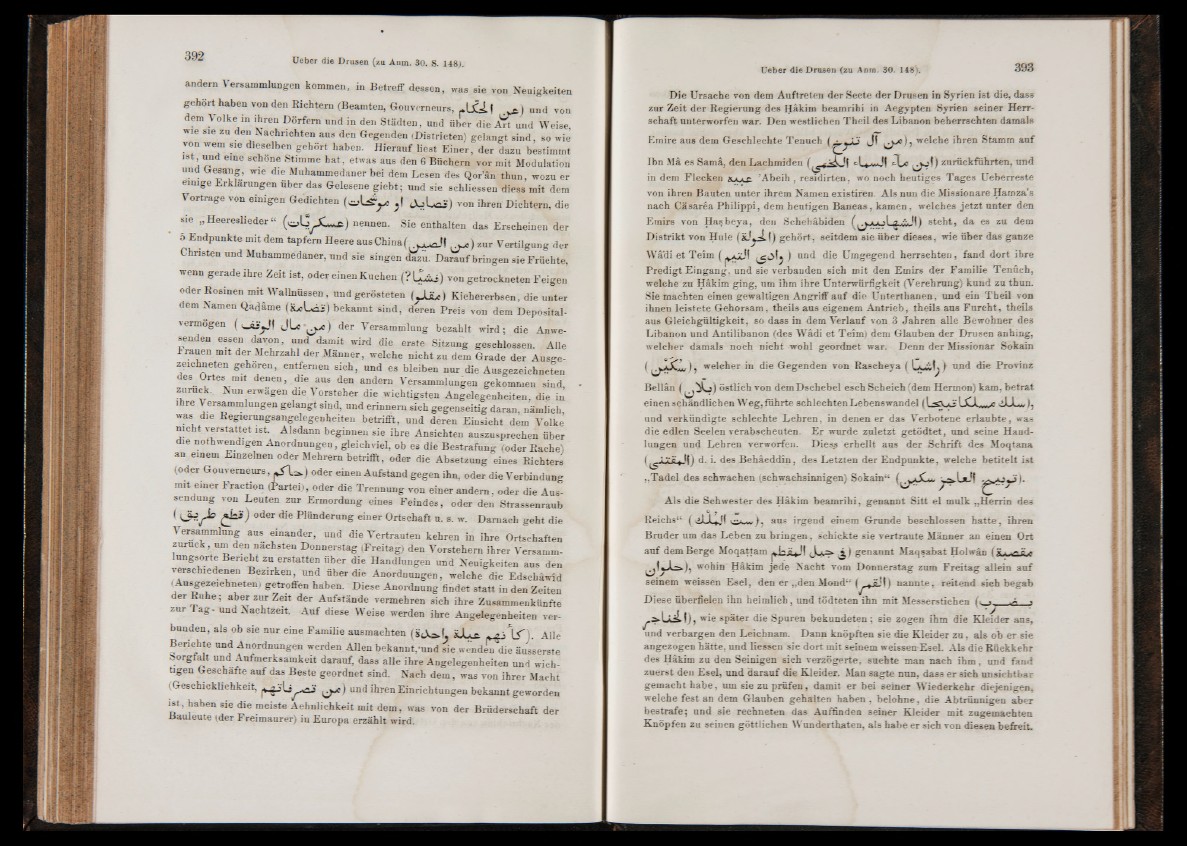 392
Ueber die Drusen (zu Anm. 30. S. 148).
andern Versammlungen kommen, in Betreff dessen, was sie von Neuigkeiten
gehört haben von den Richtern (Beamten, Gouverneurs, عن الحكام) und von
dem Volke in ihren Dörfern und in den Städten, und über die Art und Weise,
wie sie zu den Nachrichten aus den Gegenden (Districten) gelangt sind, so wie
von wem sie dieselben gehört haben. Hierauf liest Einer, der dazu bestimmt
ist, und eine schöne Stimme hat, etwas aus den 6 Büchern vor mit Modulation
und Gesang, wie die Muhammedaner bei dem Lesen des Qor'ân thun, wozu er
einige Erklärungen über das Gelesene giebt; und sie schliessen diess mit dem
Vortrage von einigen Gedichten (قصايد او) von ihren Dichtern, die
sie „Heereslieder“ (عسكريات) nennen. Sie enthalten das Erscheinen der
5 Endpunkte mit dem tapfern Heere aus China (من الصين) zur Vertilgung der
Christen und Muhammedaner, und sie singen dazu. Darauf bringen sie Früchte,
wenn gerade ihre Zeit ist, oder einen Kuchen von getrockneten Feigen
oder Rosinen mit Wallnüssen, und gerösteten Kichererbsen, die unter
dem Namen Qaḍâme (قضامة) bekannt sind, deren Preis von dem Deposital-
vermögen (من مال الوقف) der Versammlung bezahlt wird; die Anwe-
senden essen davon, und damit wird die erste Sitzung geschlossen. Alle
Frauen mit der Mehrzahl der Männer, welche nicht zu dem Grade der Ausge-
zeichneten gehören, entfernen sich, und es bleiben nur die Ausgezeichneten
des Ortes mit denen, die aus den andern Versammlungen gekommen sind,
zurück. Nun erwägen die Vorsteher die wichtigsten Angelegenheiten, die in
ihre Versammlungen gelangt sind, und erinnern sich gegenseitig daran, nämlich,
was die Regierungsangelegenheiten betrifft, und deren Einsicht dem Volke
nicht verstattet ist. Alsdann beginnen sie ihre Ansichten auszusprechen über
die nothwendigen Anordnungen, gleichviel, ob es die Bestrafung (oder Rache)
an einem Einzelnen oder Mehrern betrifft, oder die Absetzung eines Richters
(oder Gouverneurs, حاكم) oder einen Aufstand gegen ihn, oder die Verbindung
mit einer Fraction (Partei), oder die Trennung von einer andern, oder die Aus-
sendung von Leuten zur Ermordung eines Feindes, oder den Strassenraub
(قطع طريق) oder die Plünderung einer Ortschaft u. s. w. Darnach geht die
Versammlung aus einander, und die Vertrauten kehren in ihre Ortschaften
zurück, um den nächsten Donnerstag (Freitag) den Vorstehern ihrer Versamm-
lungsorte Bericht zu erstatten über die Handlungen und Neuigkeiten aus den
verschiedenen Bezirken, und über die Anordnungen, welche die Edschâwîd
(Ausgezeichneten) getroffen haben. Diese Anordnung findet statt in den Zeiten
der Ruhe; aber zur Zeit der Aufstände vermehren sich ihre Zusammenkünfte
zur Tag- und Nachtzeit. Auf diese Weise werden ihre Angelegenheiten ver-
bunden, als ob sie nur eine Familie ausmachten (كانهم عيلة واحدة). Alle
Berichte und Anordnungen werden Allen bekannt, und sie wenden die äusserste
Sorgfalt und Aufmerksamkeit darauf, dass alle ihre Angelegenheiten und wich-
tigen Geschäfte auf das Beste geordnet sind. Nach dem, was von ihrer Macht
(Geschicklichkeit, من تصرفاتهم) und ihren Einrichtungen bekannt geworden
ist, haben sie die meiste Aehnlichkeit mit dem, was von der Brüderschaft der
Bauleute (der Freimaurer) in Europa erzählt wird.
Ueber die Drusen (zu Anm. 30. 148).
393
Die Ursache von dem Auftreten der Secte der Drusen in Syrien ist die, dass
zur Zeit der Regierung des Ḥâkim beamrihi in Aegypten Syrien seiner Herr-
schaft unterworfen war. Den westlichen Theil des Libanon beherrschten damals
Emire aus dem Geschlechte Tenuch (من آل تنوخ), welche ihren Stamm auf
Ibn Mâ es Samâ, den Lachmiden (ابن ماء السماء اللخمى) zurückführten, und
in dem Flecken عبيه 'Abeih, residirten, wo noch heutiges Tages Ueberreste
von ihren Bauten unter ihrem Namen existiren. Als nun die Missionare Ḥamza's
nach Cäsaréa Philippi, dem heutigen Baneas, kamen, welches jetzt unter den
Emirs von Ḥaṣbeya, den Schehâbiden (الشهابيين) steht, da es zu dem
Distrikt von Hule (الحولة) gehört, seitdem sie über dieses, wie über das ganze
Wâdi et Teim (وادى التيم) und die Umgegend herrschten, fand dort ihre
Predigt Eingang, und sie verbanden sich mit den Emirs der Familie Tenûch,
welche zu Ḥâkim ging, um ihm ihre Unterwürfigkeit (Verehrung) kund zu thun.
Sie machten einen gewaltigen Angriff auf die Unterthanen, und ein Theil von
ihnen leistete Gehorsam, theils aus eigenem Antrieb, theils aus Furcht, theils
aus Gleichgültigkeit, so dass in dem Verlauf von 3 Jahren alle Bewohner des
Libanon und Antilibanon (des Wâdi et Teim) dem Glauben der Drusen anhing,
welcher damals noch nicht wohl geordnet war. Denn der Missionar Sokain
(سكين), welcher in die Gegenden von Rascheya (راشيا) und die Provinz
Bellân (بلان) östlich von dem Dschebel esch Scheich (dem Hermon) kam, betrat
einen schändlichen Weg, führte schlechten Lebenswandel (سلك مسلكا قبيحا),
und verkündigte schlechte Lehren, in denen er das Verbotene erlaubte, was
die edlen Seelen verabscheuten. Er wurde zuletzt getödtet, und seine Hand-
lungen und Lehren verworfen. Diess erhellt aus der Schrift des Moqtana
(المقتنى) d. i. des Behâeddîn, des Letzten der Endpunkte, welche betitelt ist
„Tadel des schwachen (schwachsinnigen) Sokain“ (توبيخ العاجز سكين).
Als die Schwester des Ḥâkim beamrihi, genannt Sitt el mulk „Herrin des
Reichs“ (ست الملك), aus irgend einem Grunde beschlossen hatte, ihren
Bruder um das Leben zu bringen, schickte sie vertraute Männer an einen Ort
auf dem Berge Moqaṭṭam (فى جبل المقطم) genannt Maqṣabat Ḥolwân (مقصبة
حلوان), wohin Ḥâkim jede Nacht vom Donnerstag zum Freitag allein auf
seinem weissen Esel, den er „den Mond“ (القمر) nannte, reitend sich begab
Diese überfielen ihn heimlich, und tödteten ihn mit Messerstichen (بضرب
الخناجر), wie später die Spuren bekundeten; sie zogen ihm die Kleider aus,
und verbargen den Leichnam. Dann knöpften sie die Kleider zu, als ob er sie
angezogen hätte, und liessen sie dort mit seinem weissen Esel. Als die Rückkehr
des Ḥâkim zu den Seinigen sich verzögerte, suchte man nach ihm, und fand
zuerst den Esel, und darauf die Kleider. Man sagte nun, dass er sich unsichtbar
gemacht habe, um sie zu prüfen, damit er bei seiner Wiederkehr diejenigen,
welche fest an dem Glauben gehalten haben, belohne, die Abtrünnigen aber
bestrafe; und sie rechneten das Auffinden seiner Kleider mit zugemachten
Knöpfen zu seinen göttlichen Wunderthaten, als habe er sich von diesen befreit.